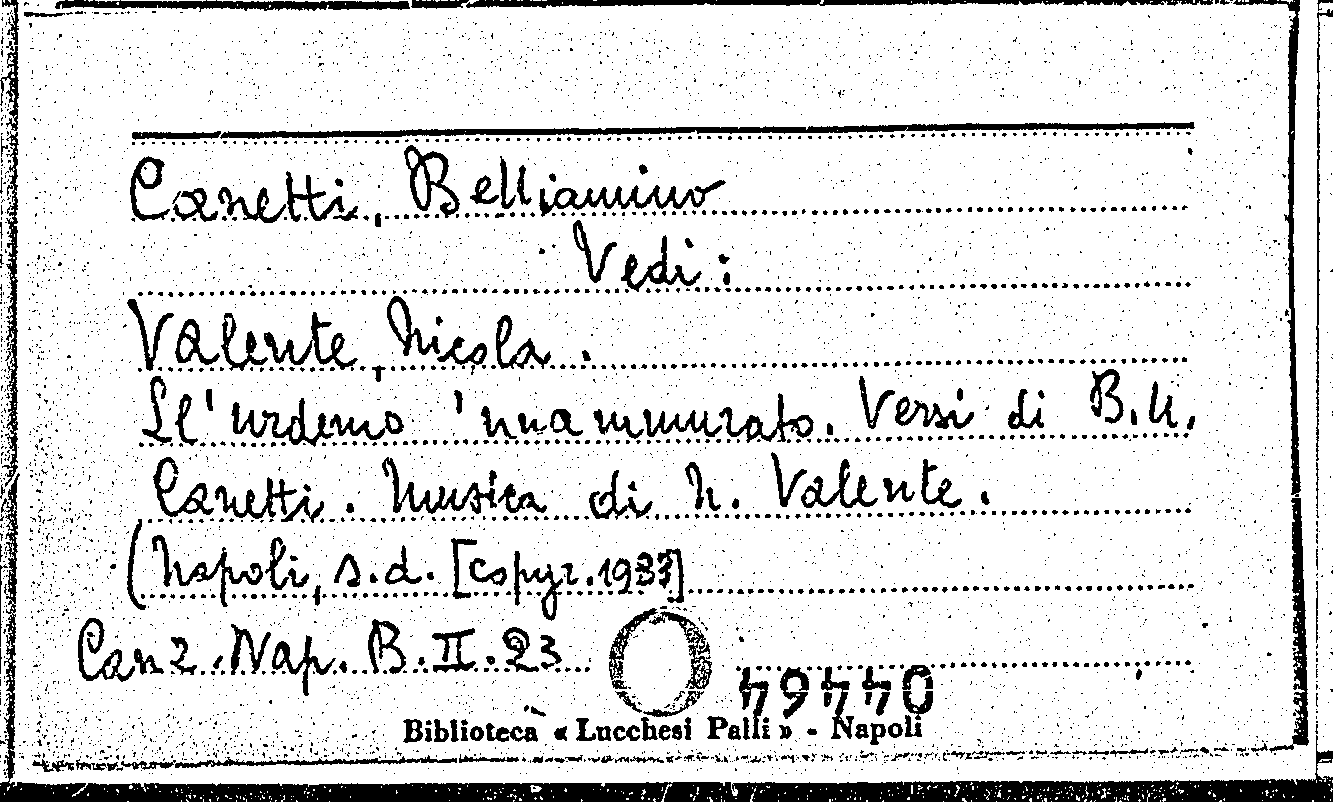 Canetti, Belliamino
Vedi:
Valente, Nicola.
Ll'urdemo 'nnammurato. Versi di B. N.
Canetti. Musica di N. Valente.
(Napoli, s.d. [copyr. 1933]
Canz. Nap. B. II. 23
04464
Biblioteca « Lucchesi Palli » - Napoli